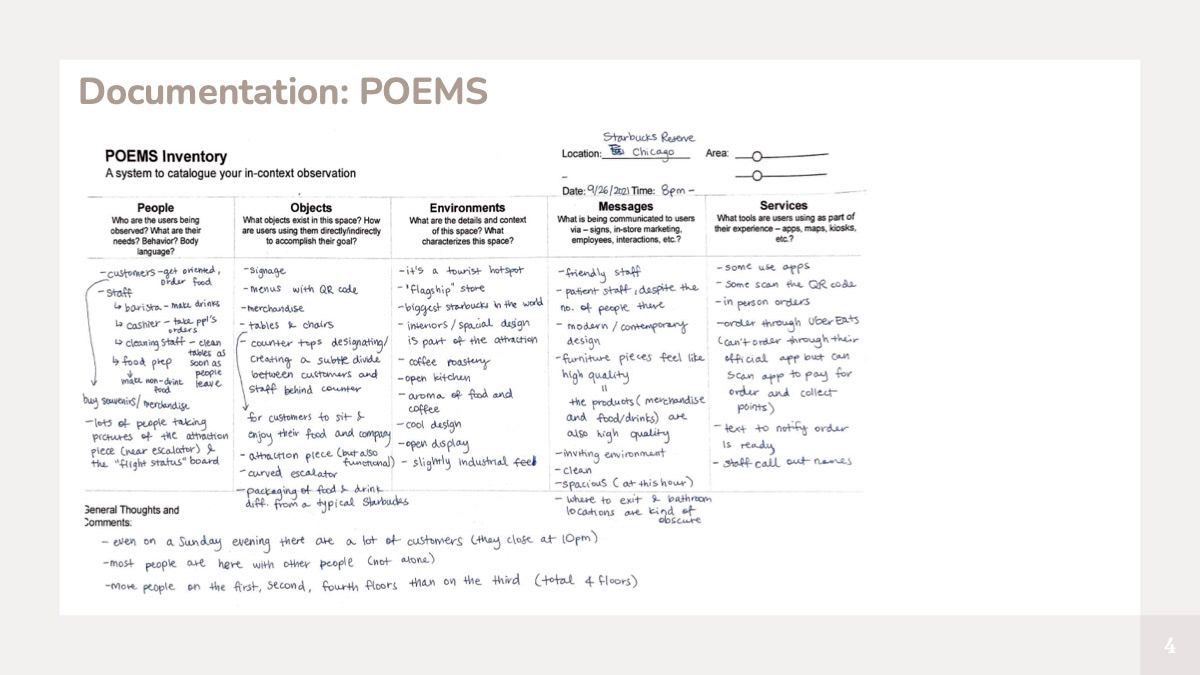 Documentation: POEMS
POEMS Inventory
A system to catalogue your in-context observation
Starbucks Reserve
Location: Chicago
Area:
–
Date: 9/26/2021 Time: 8pm -
People
Who are the users being
observed? What are their
needs? Behavior? Body
language?
- customers - get oriented,
order food
- Staff
↳ barista - make drinks
↳ cashier - take ppl's
orders
↳ cleaning staff - clean
tables as
soon as
people
leave
↳ food prep
↓
make non-drink
food
buy souvenirs/ merchandise
- lots of people taking
pictures of the attraction
piece (near escalator) &
the "flight status" board
Objects
What objects exist in this space? How
are users using them directly/indirectly
to accomplish their goal?
- signage
- menus with QR code
- merchandise
- tables & chairs
- counter tops designating/
creating a subtle divide
between customers and
staff behind counter
for customers to sit &
enjoy their food and company
- attraction piece (but also
functional)
- curved escalator
- packaging of food & drink
diff. from a typical Starbucks
Environments
What are the details and context
of this space? What
characterizes this space?
- it's a tourist hotspot
- "flagship" store
- biggest starbucks in the world
- interiors / spacial design
is part of the attraction
- coffee roastery
- open kitchen
- aroma of food and
coffee
- cool design
- open display
- slightly industrial feel
Messages
What is being communicated to users
via – signs, in-store marketing,
employees, interactions, etc.?
- friendly staff
- patient staff, despite the
no. of people there
- modern / contemporary
design
- furniture pieces feel like
high quality
=
the products (merchandise
and food/drinks) are
also high quality
- inviting environment
- clean
- spacious (at this hour)
- where to exit & bathroom
locations are kind of
obscure
Services
What tools are users using as part of
their experience – apps, maps, kiosks,
etc.?
- some use apps
- some scan the QR code
- in person orders
- order through UberEats
(can't order through their
official app but can
scan app to pay for
order and collect
points)
- text to notify order
is ready
- staff call out names
General Thoughts and
Comments:
- even on a Sunday evening there are a lot of customers (they close at 10pm)
- most people are here with other people (not alone)
- more people on the first, second, fourth floors than on the third (total 4 floors)
4